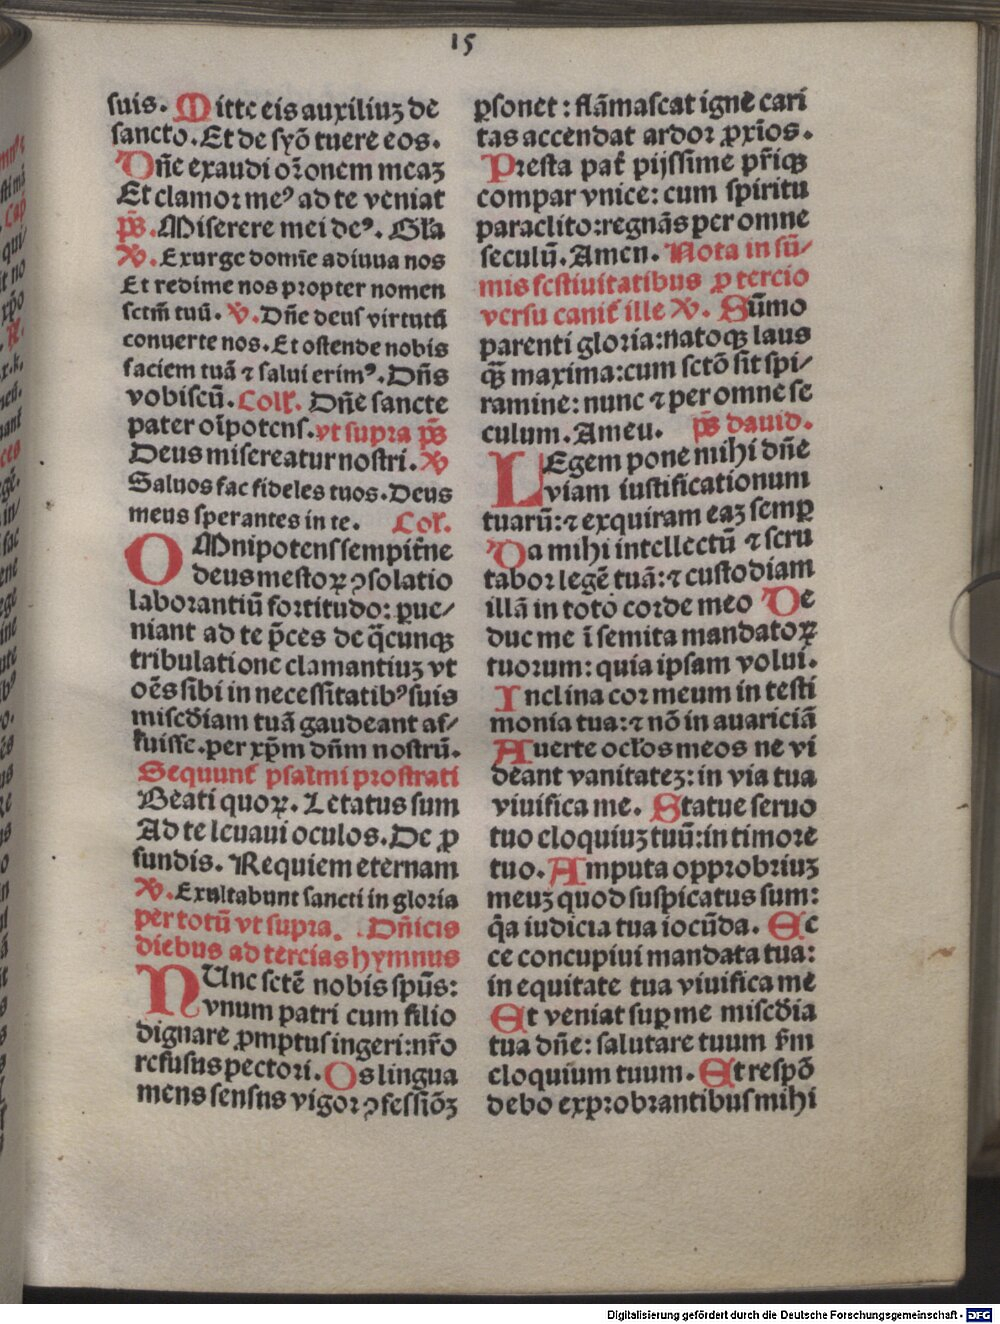 15
suis. Mitte eis auxiliuꝫ de
sancto. Et de syō tuere eos.
Dn̄e exaudi or̄onem meaꝫ
Et clamor meꝰ ad te veniat
ps̄. Miserere mei deꝰ. Gl̄a
℣. Exurge domīe adiuua nos
Et redime nos propter nomen
sctm̄ tuū. ℣. Dn̄e deus virtutū
conuerte nos. Et ostende nobis
faciem tuā ⁊ salui erimꝰ. Dn̄s
vobiscū. Coll̄. Dn̄e sancte
pater oīpotens. vt supra ps̄
Deus misereatur nostri. ℣
Saluos fac fideles tuos. Deus
meus sperantes in te. Col̄.
OMnipotens sempit̄ne
deus mestoꝝ ꝯsolatio
laborantiū fortitudo: ꝑue/
niant ad te p̄ces de q̄cunqꝫ
tribulatione clamantiuꝫ vt
oēs sibi in necessitatibꝰ suis
misc̄diam tuā gaudeant af/
fuisse. per xp̄m dn̄m nostrū.
Sequunt̄ psalmi prostrati
Beati quoꝝ. Letatus sum
Ad te leuaui oculos. De ꝓ
fundis. Requiem eternam
℣. Exultabunt sancti in gloria
per totū vt supra. Dn̄icis
diebus ad tercias hymnus
NUnc sctē nobis spūs:
vnum patri cum filio
dignare ꝓmptus ingeri: nr̄o
refusus pectori. Os lingua
mens sensus vigor ꝯfessiōꝫ
ꝑsonet: flāmascat igne cari
tas accendat ardor ꝓxīos.
Presta pat̄ pijssime pr̄iqꝫ
compar vnice: cum spiritu
paraclito: regnās per omne
seculū. Amen. Nota in sū/
mis festiuitatibus ꝓ tercio
versu canit̄ ille ℣. Sūmo
parenti gloria: natoqꝫ laus
qꝫ̄ maxima: cum sctō sit spi/
ramine: nunc ⁊ per omne se
culum. Ameu. ps̄ dauid.
LEgem pone mihi dn̄e
viam iustificationum
tuarū: ⁊ exquiram eaꝫ semꝑ
Da mihi intellectū ⁊ scru
tabor legē tuā: ⁊ custodiam
illā in toto corde meo De
duc me ī semita mandatoꝝ
tuorum: quia ipsam volui.
Inclina cor meum in testi
monia tua: ⁊ nō in auariciā
Auerte ocl̄os meos ne vi
deant vanitateꝫ: in via tua
viuifica me. Statue seruo
tuo eloquiuꝫ tuū: in timore
tuo. Amputa opprobriuꝫ
meuꝫ quod suspicatus sum:
q̄a iudicia tua iocūda. Ec
ce concupiui mandata tua:
in equitate tua viuifica me
Et veniat suꝑ me misc̄dia
tua dn̄e: salutare tuum s̄m
eloquium tuum. Et respō
debo exprobrantibus mihi
Digitalisierung gefördert durch die Deutsche Forschungsgemeinschaft - DFG